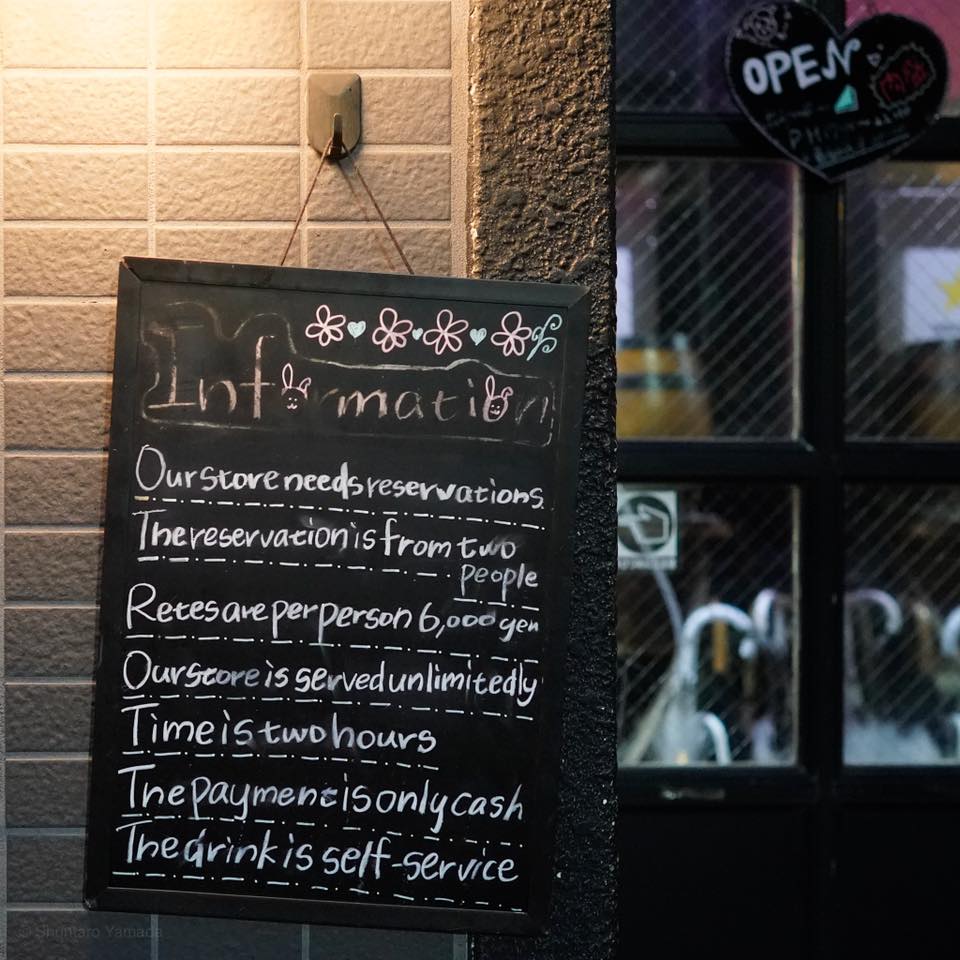 OPEN
Information
Our store needs reservations.
The reservation is from two
people
Retes are per person 6,000 yen
Our store is served unlimitedly
Time is two hours
The payment is only cash
The drink is self-service
© Shuntaro Yamada